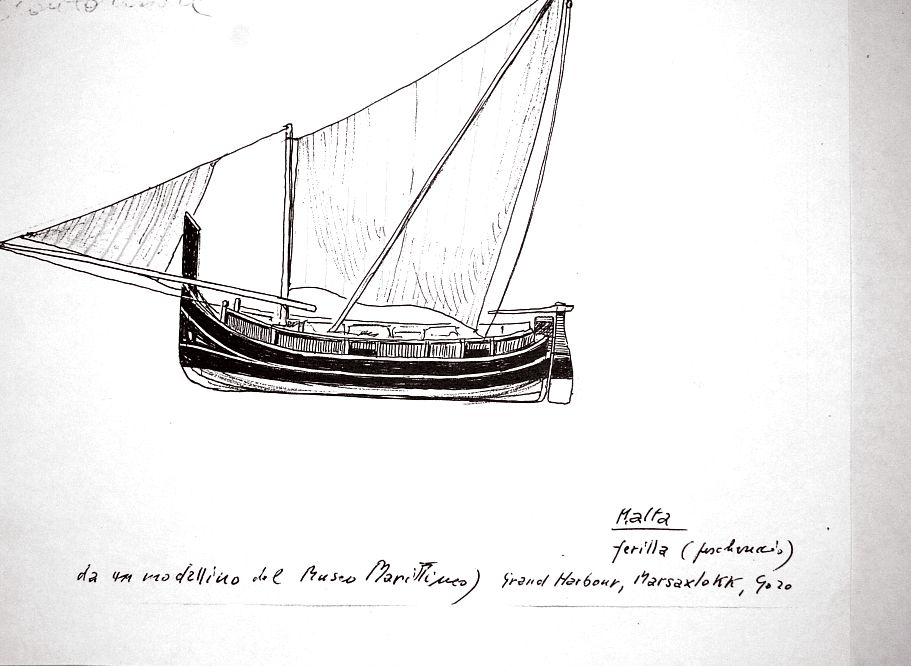 Malta
ferilla (peschereccio)
da un modellino del Museo Marittimo) Grand Harbour, Marsaxlokk, Gozo